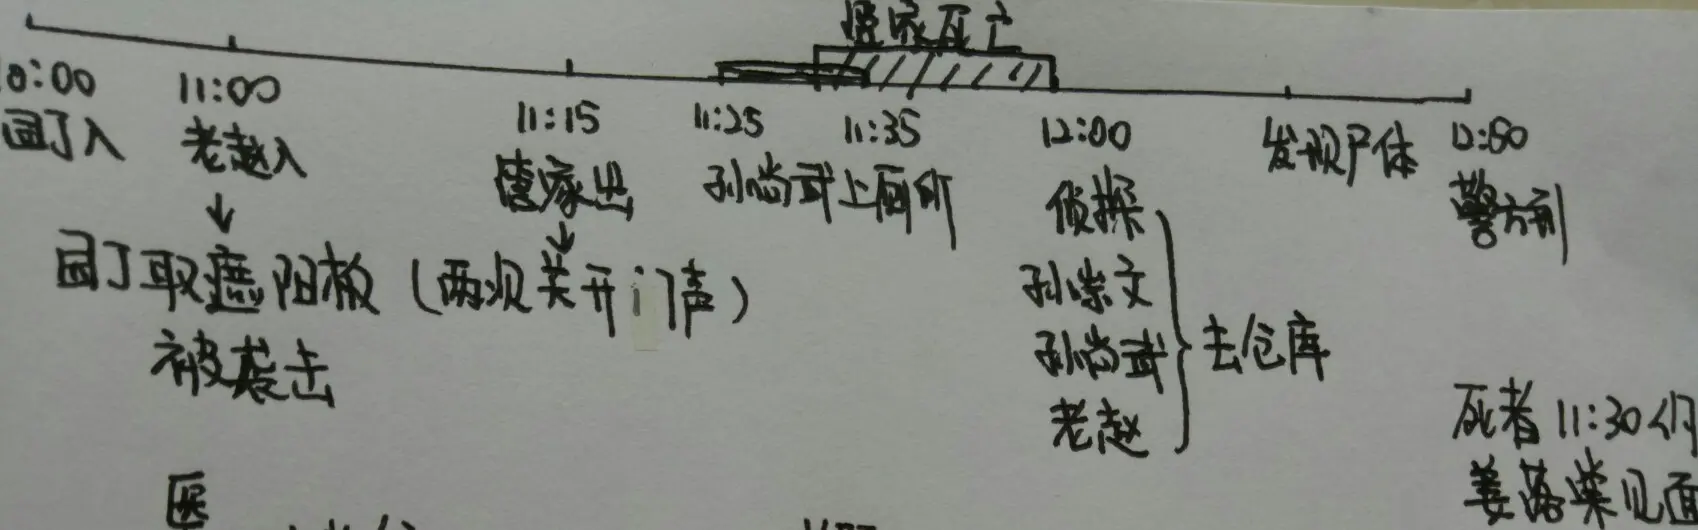 唐家死亡
0:00 11:00 11:15 11:25 11:35 12:00 发现尸体 12:50
园丁入 老赵入 唐家出 孙尚武上厕所 侦探 警方到
↓ ↓
园丁取遮阳板(两次关开门声) 孙崇文
被袭击 孙尚武 去仓库
老赵
死者11:30们
姜落棠见面
医